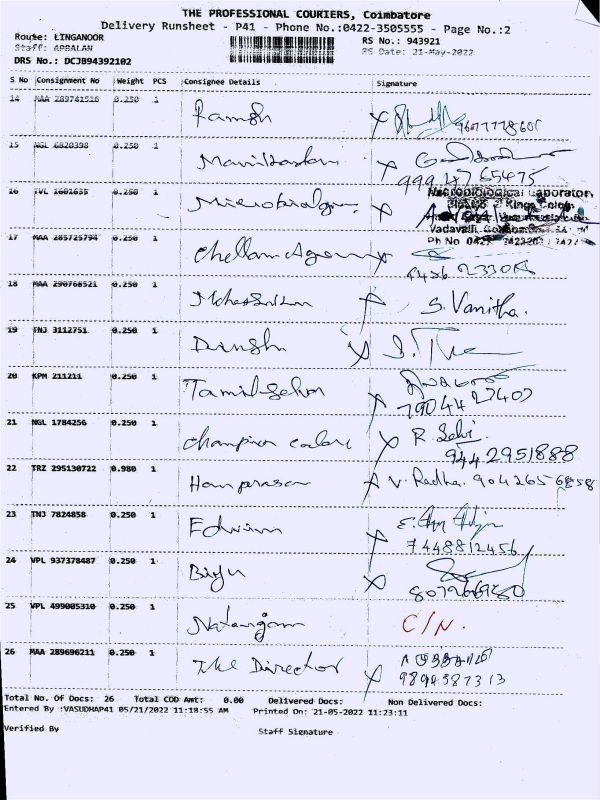 THE PROFESSIONAL COURIERS, Coimbatore
Delivery Runsheet - P41 - Phone No.:0422-3505555 - Page No.:2
Route: LINGANOOR
RS No.: 943921
Staff: ARBALAN
RS Date: 21-May-2022
DRS No.: DCJB94392102
S No Consignment No Weight PCS Consignee Details Signature
14 MAA 289741516 0.250 1 Ramesh
15 NGL 6820398 0.250 1 Manikandan
99947 65475
16 TVL 1601635 0.250 1
Microbiological Laboratory
Vadavalli, Coimbatore
Ph No 0427
17 MAA 285725794 0.250 1 Chellam Agency
18 MAA 290768521 0.250 1 S. Vanitha.
19 TNJ 3112751 0.250 1 Dinesh
20 KPM 211211 0.250 1 Tamilselvan
79044 27407
21 NGL 1784256 0.250 1 Champion R. Selvi
944 2951888
22 TRZ 295130722 0.980 1 Hariprasan V. Radha. 9042656858
23 TNJ 7824858 0.250 1 Edwin
7448812456
24 VPL 937378487 0.250 1 Biju
25 VPL 499005310 0.250 1 Natarajan C/N.
26 MAA 289696211 0.250 1 The Director
9894587313
Total No. Of Docs: 26 Total COD Amt: 0.00 Delivered Docs: Non Delivered Docs:
Entered By :VASUDHAP41 05/21/2022 11:18:55 AM Printed On: 21-05-2022 11:23:11
Verified By
Staff Signature